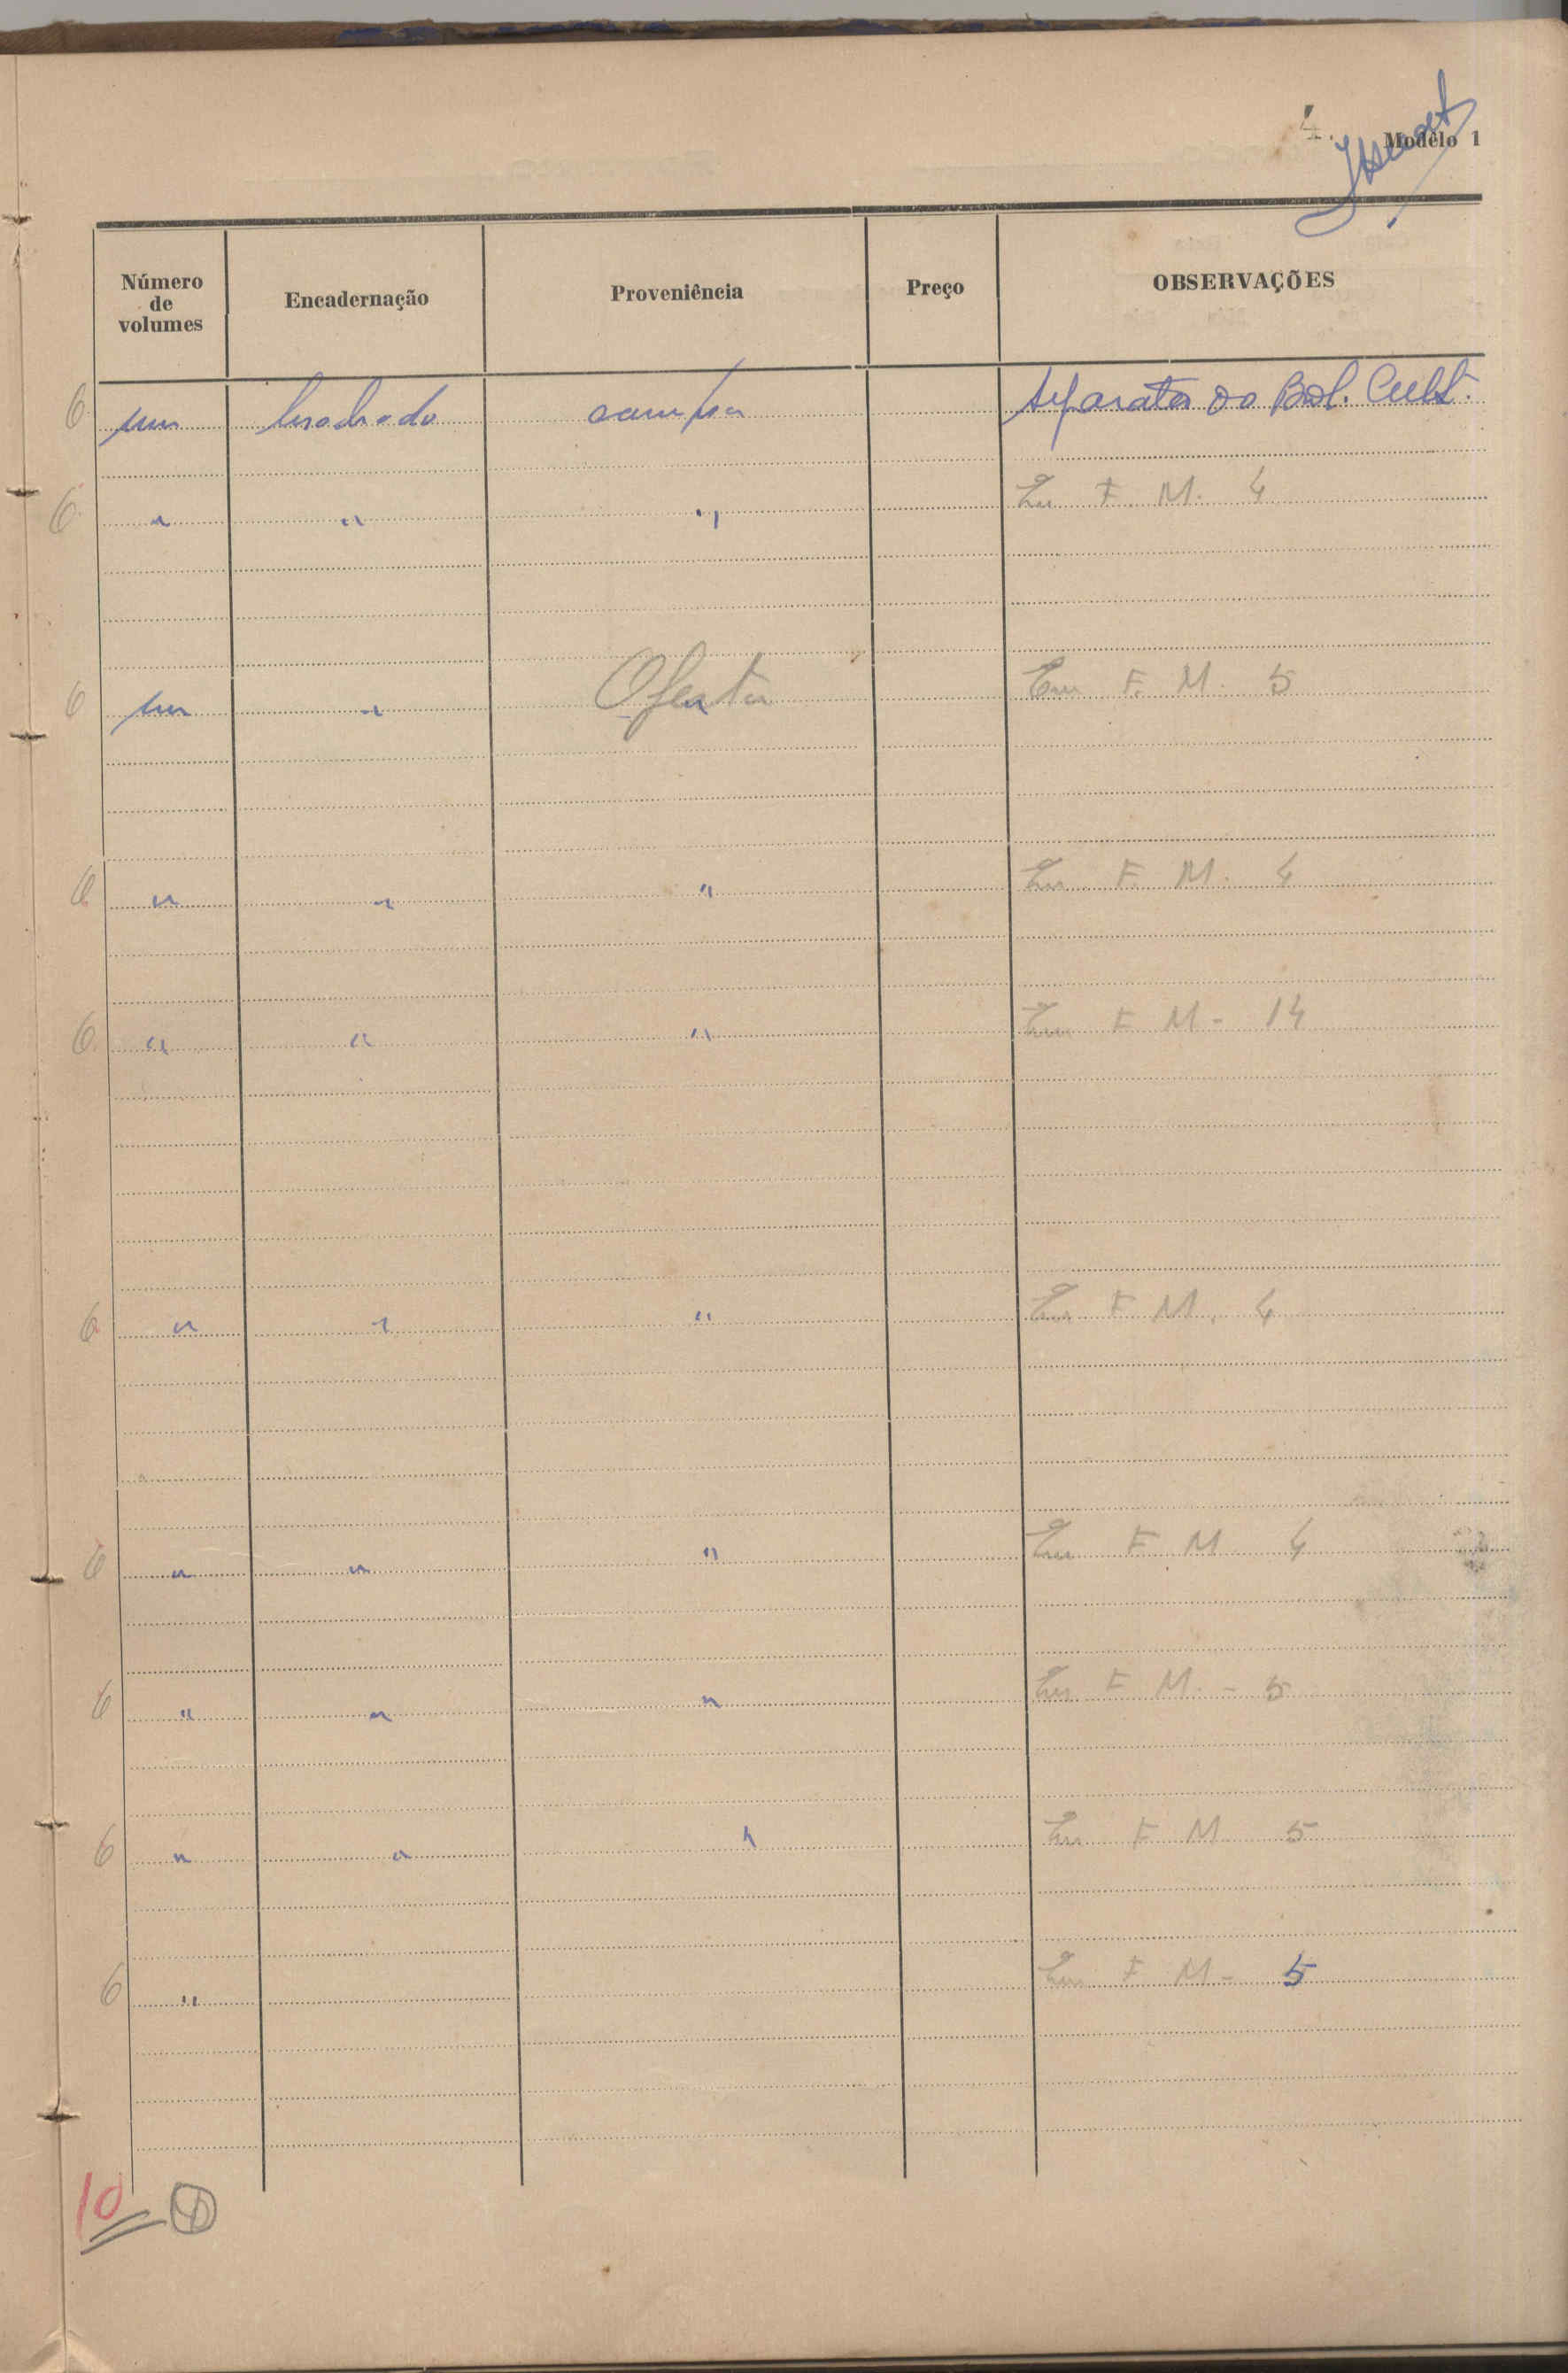 4.
Modêlo 1
Número de volumes Encadernação Proveniência Preço OBSERVAÇÕES
6 um brochado compra Separata do Bol. Cult.
6 " " " Em F. M. 4
6 um " Oferta Em F. M. 5
6 " " " Em F. M. 4
6 " " " Em F M - 14
6 " " " Em F M. 4
6 " " " Em F. M 4
6 " " " Em F M. - 5
6 " " " Em F M 5
6 " Em F M - 5
10